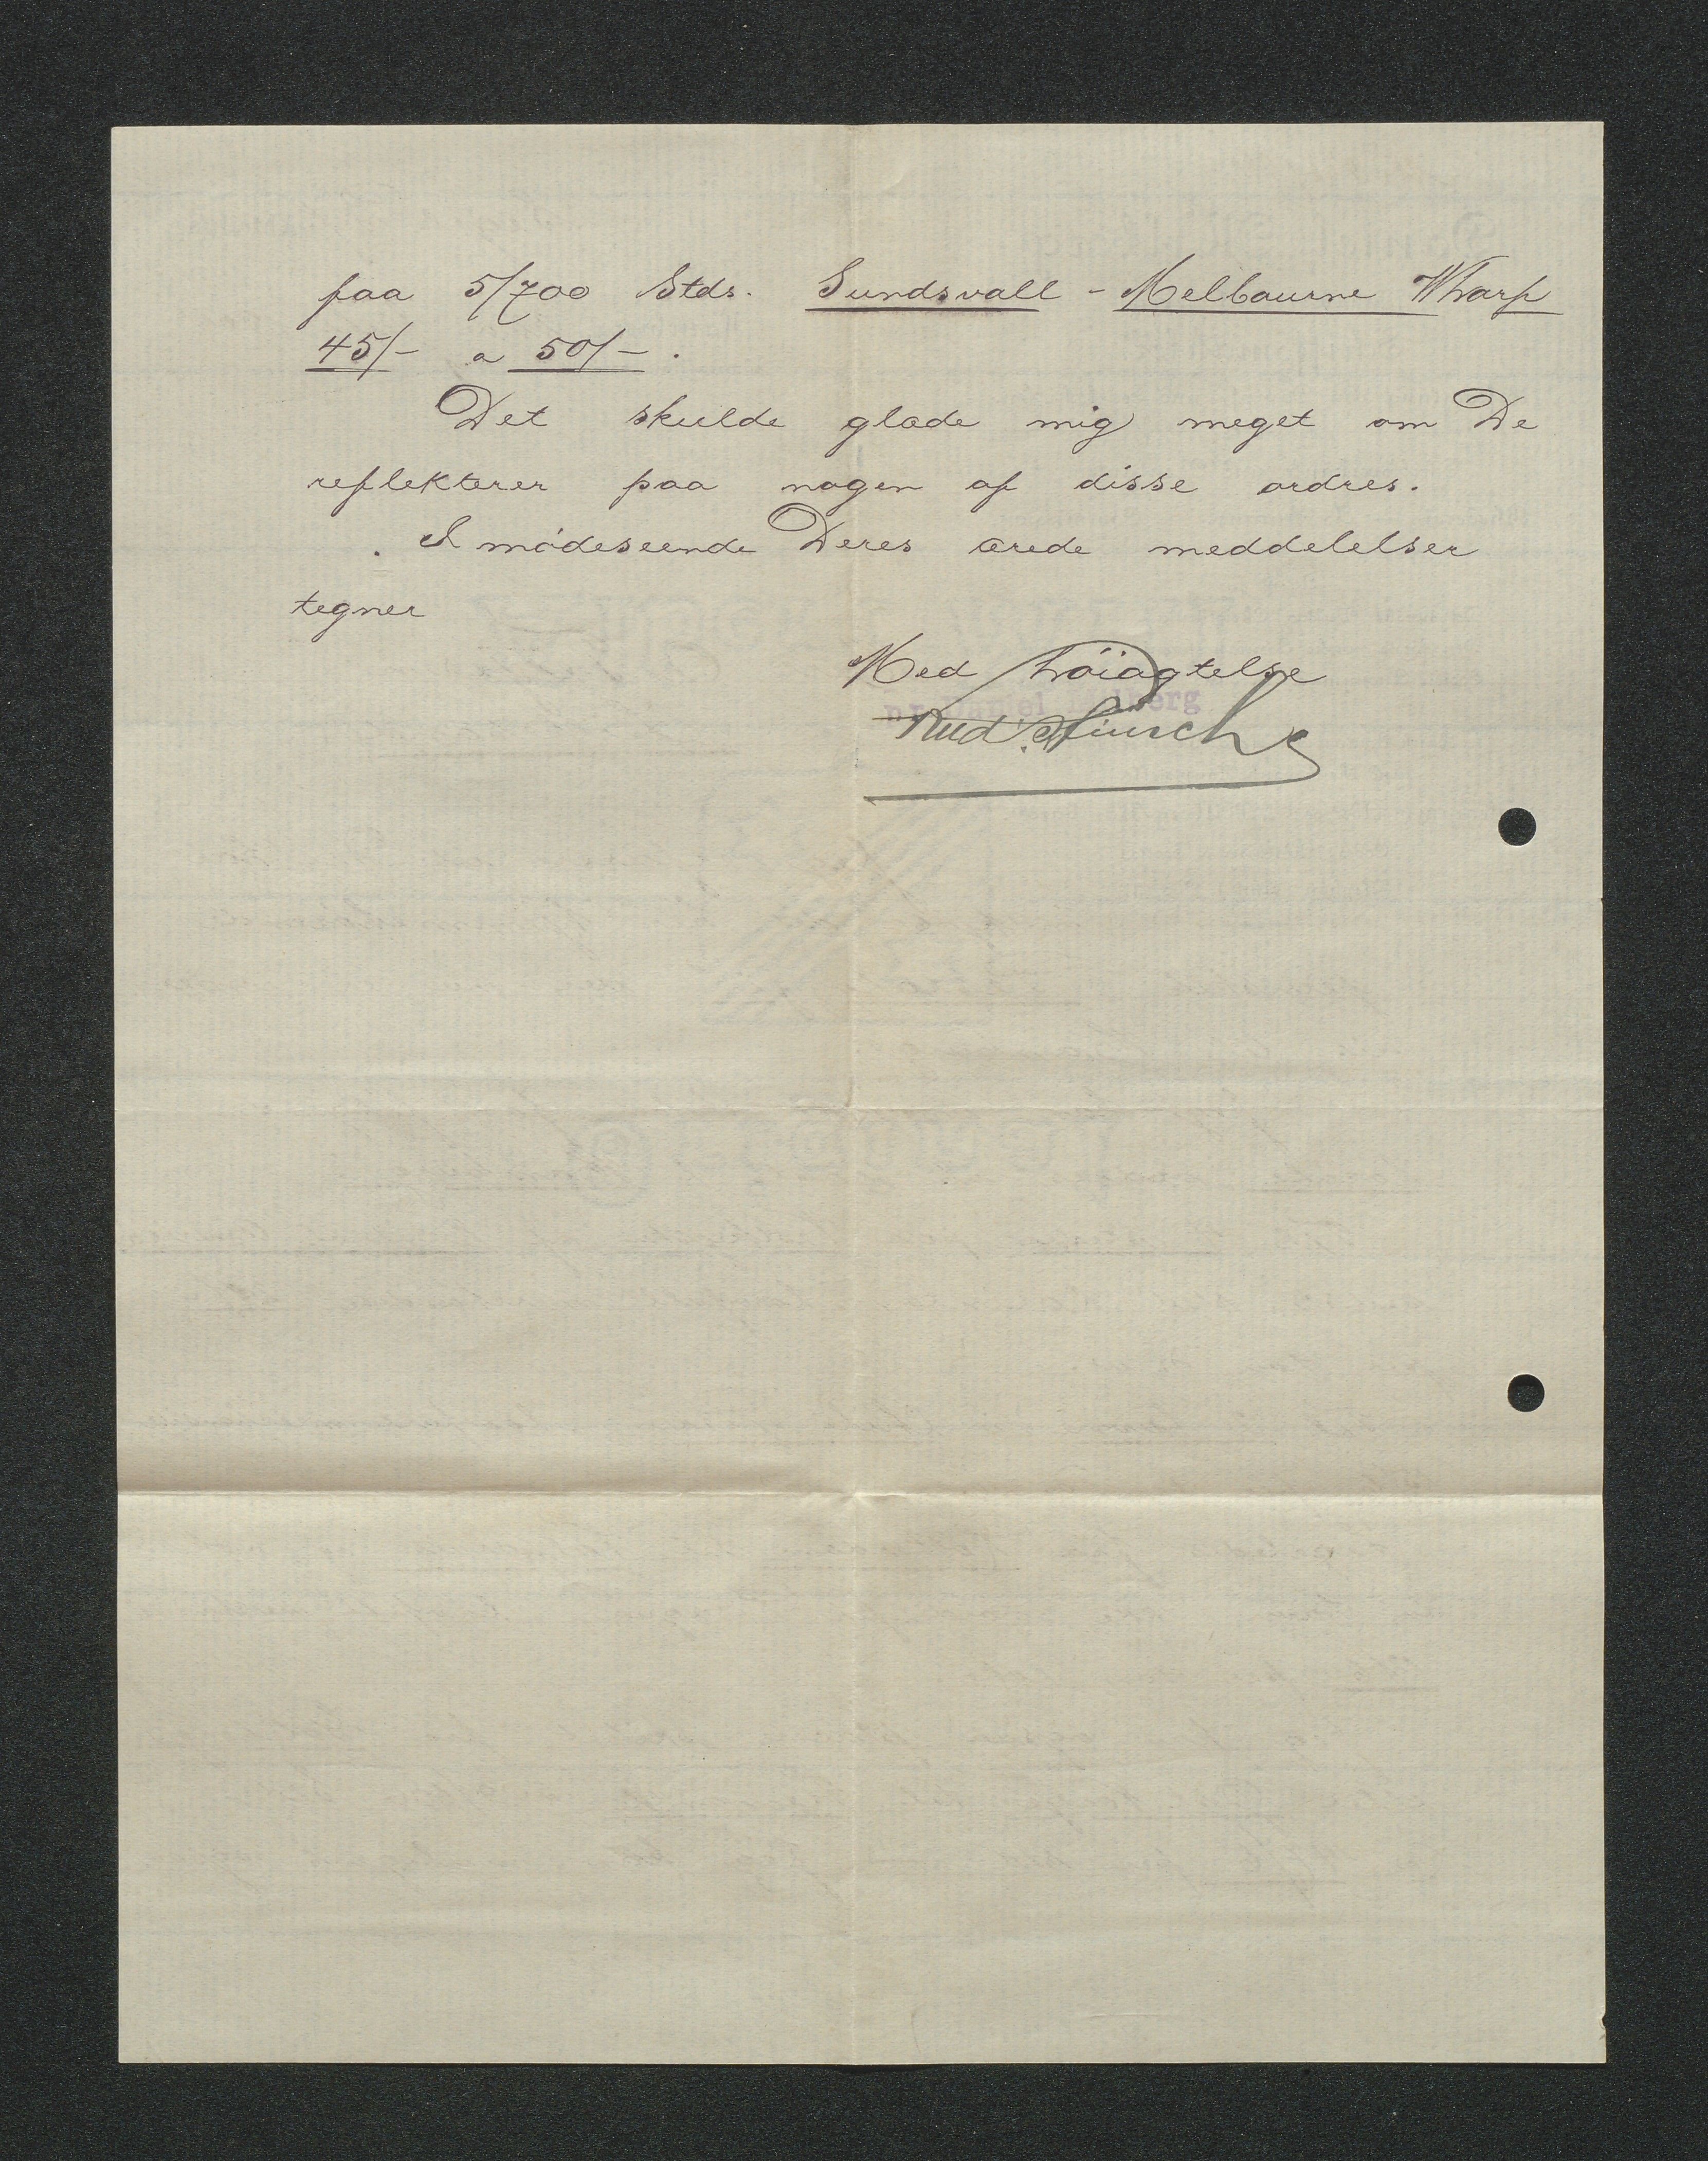 paa 5/700 Stds. Sundsvall - Melbourne Wharf
45/- a 50/- .
Det skulde glæde mig meget om De
reflekterer paa nogen af disse ordres.
Imødeseende Deres ærede meddelelser
tegner
Med höiagtelse